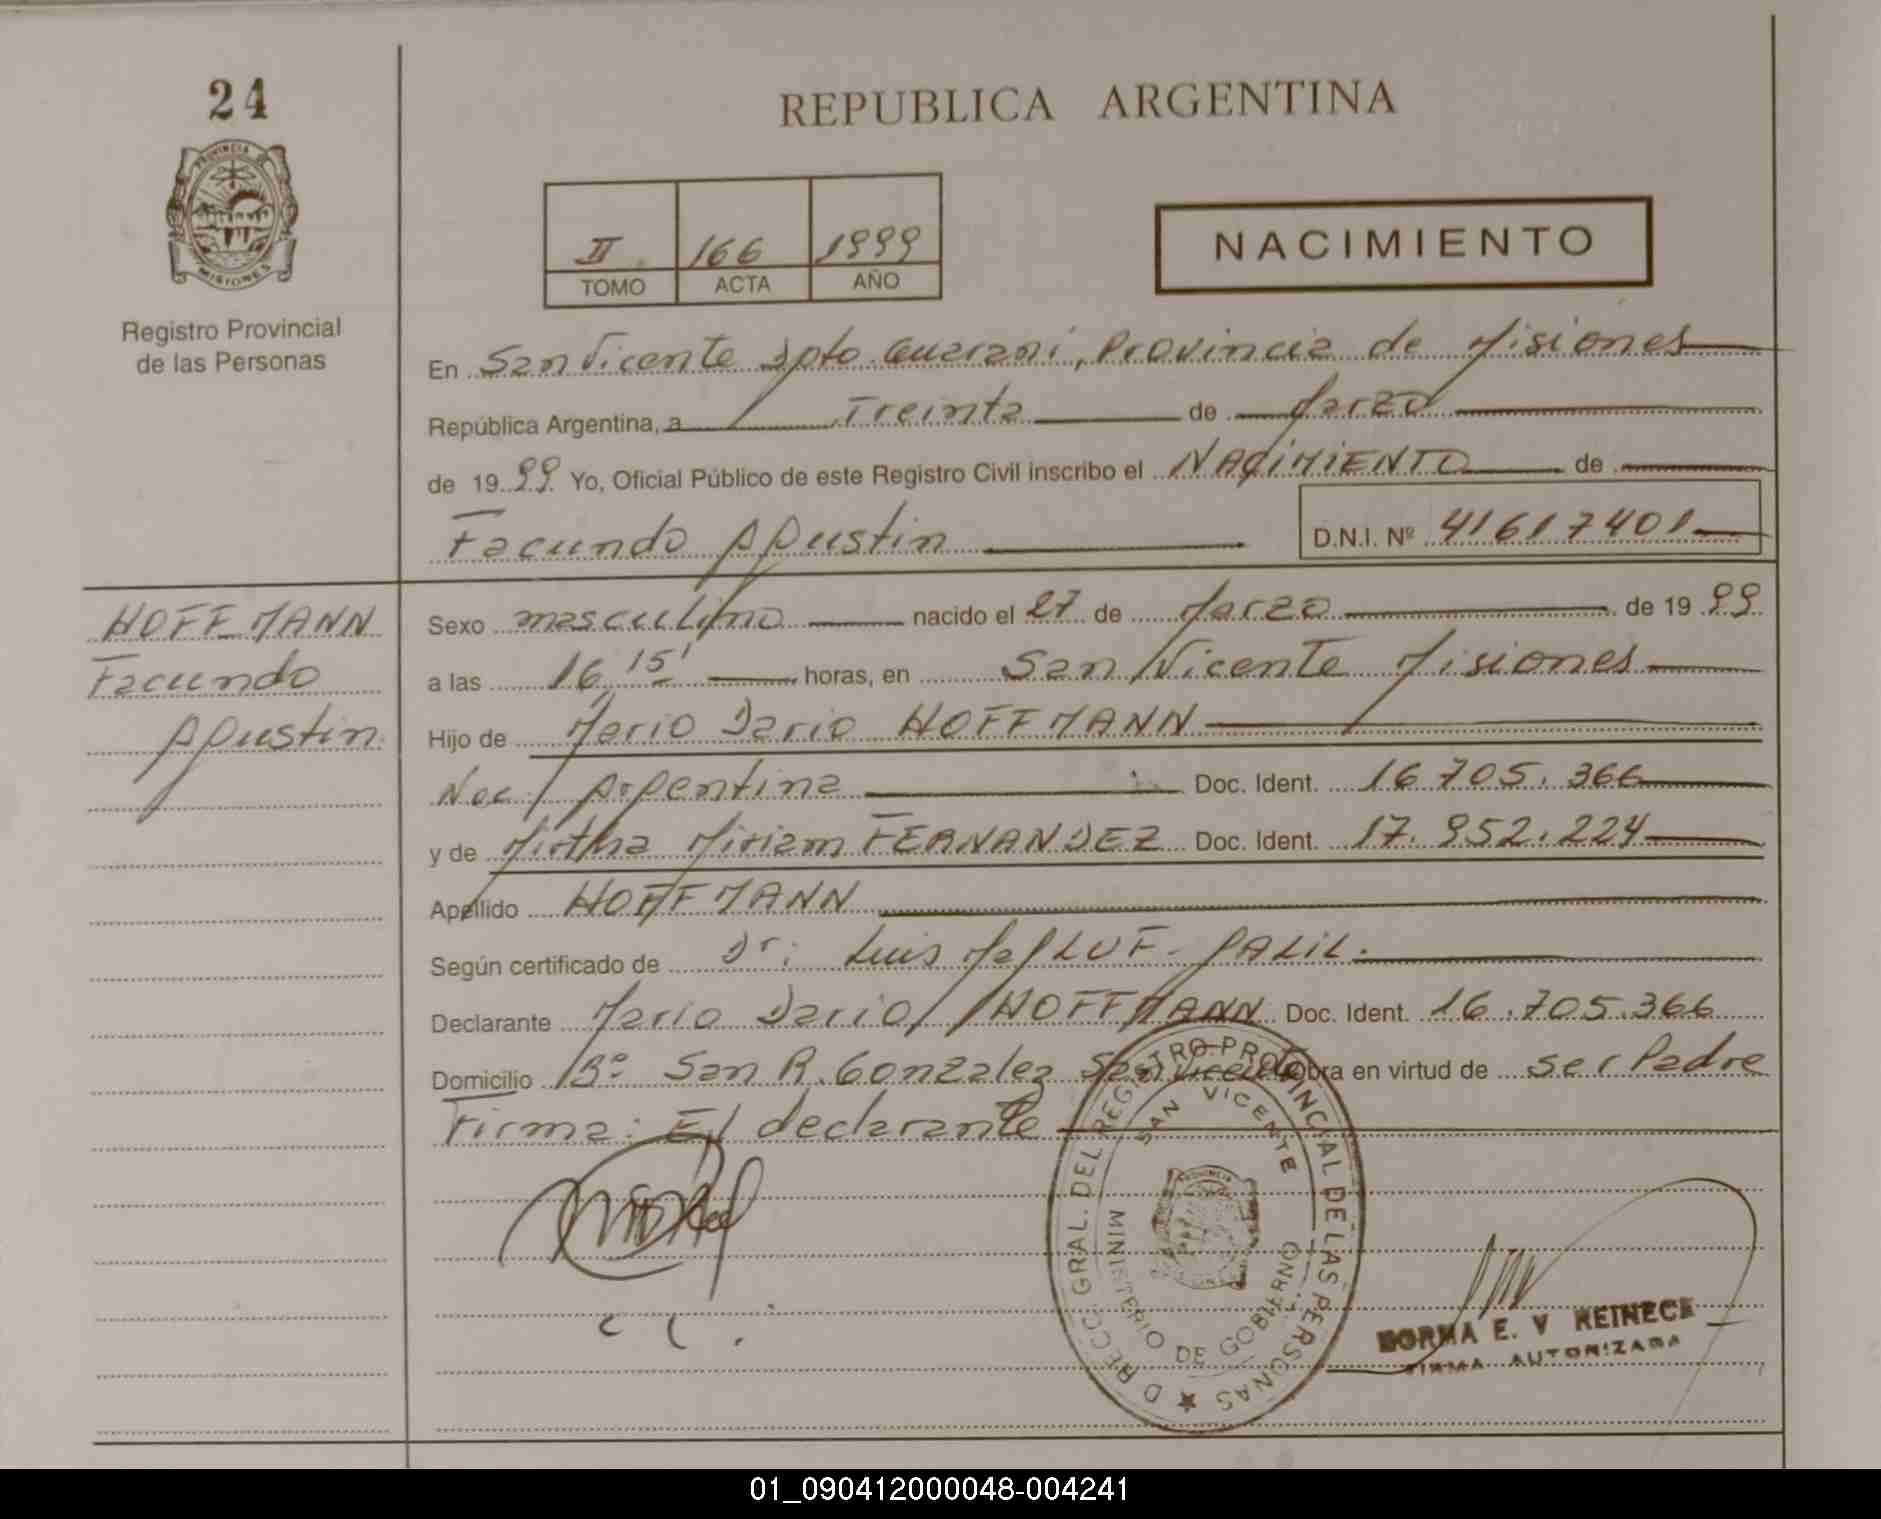 24
PROVINCIA DE
MISIONES
Registro Provincial
de las Personas
REPUBLICA ARGENTINA
II 166 1999
TOMO ACTA AÑO
NACIMIENTO
En San Vicente Dpto. Guarani, Provincia de Misiones
República Argentina, a Treinta de Marzo
de 1999 Yo, Oficial Público de este Registro Civil inscribo el NACIMIENTO de
Facundo Agustin D.N.I. Nº 41617401
HOFFMANN
Facundo
Agustin
Sexo masculino nacido el 27 de Marzo de 1999
a las 16 15' horas, en San Vicente Misiones
Hijo de Mario Dario HOFFMANN
Nac. Argentina Doc. Ident. 16.705.366
y de Mirtha Miriam FERNANDEZ Doc. Ident. 17.952.224
Apellido HOFFMANN
Según certificado de Dr: Luis MaLUF - JALIL.
Declarante Mario Dario HOFFMANN Doc. Ident. 16.705.366
Domicilio Bº San R. Gonzalez San Vicente Obra en virtud de ser Padre
Firma: El declarante
DIRECC. GRAL. DEL REGISTRO PROVINCIAL DE LAS PERSONAS
SAN VICENTE
MINISTERIO DE GOBIERNO
NORMA E. V REINECE
FIRMA AUTORIZADA
01_090412000048-004241